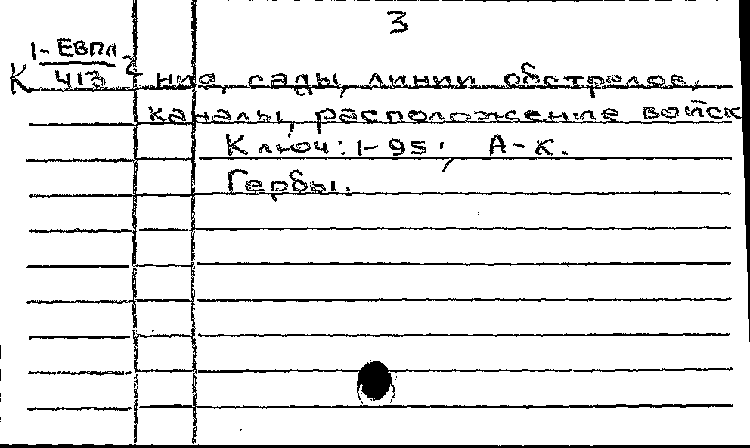 3
К 1-Евпл 2
413
ние, сады, линии обстрелов,
каналы, расположение войск
Ключ: 1-95; А-К.
Гербы.